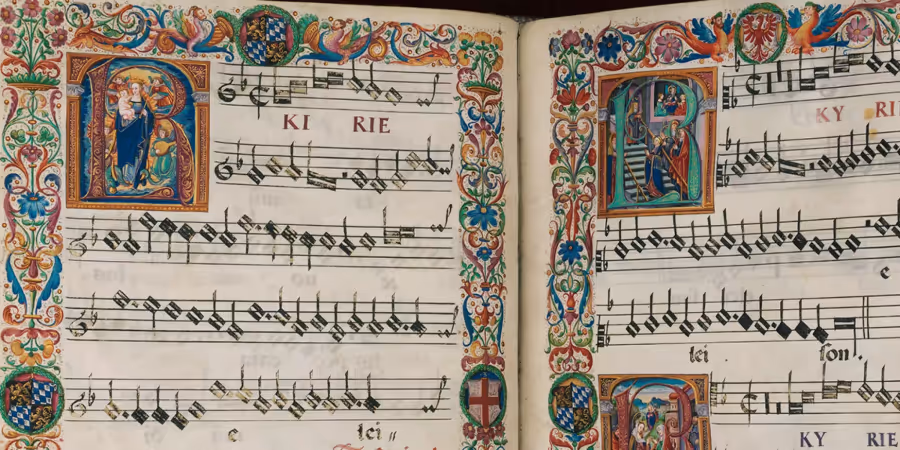 KI RIE
e lei
KY RI
e
lei . son .
KY RIE